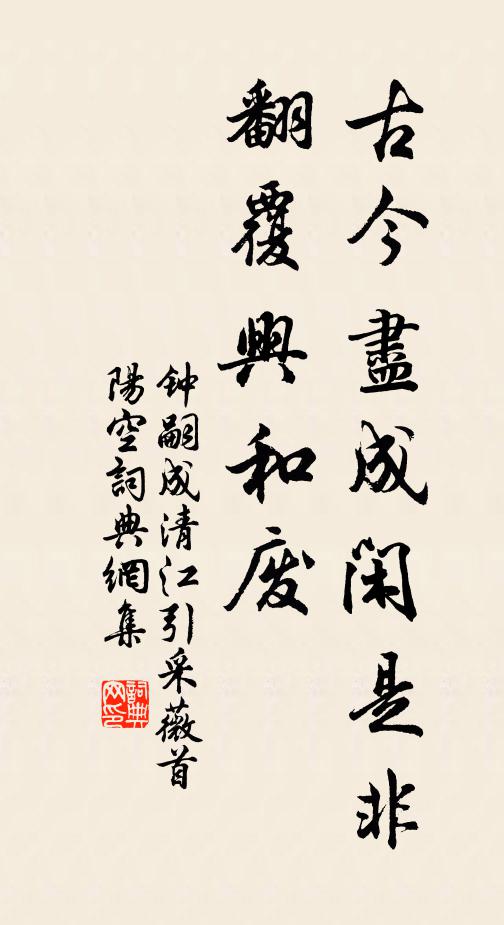 古今盡成閑是非
翻覆興和废
钟嗣成清江引采薇首
陽空詞典網集
詞典网印